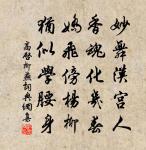 妙舞漢宮人
香魂化幾春
嬌飛傍楊柳
猶似學腰身
高啓柳燕詞典網集